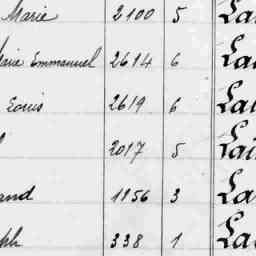 Marie 2100 5 La
arie Emmanuel 2614 6 La
Louis 2619 6 Lai
2017 5 Lai
and 1156 3 La
ph 338 1 La